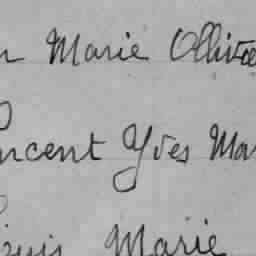 n Marie Ollivie
ncent Yves Mar
Louis Marie